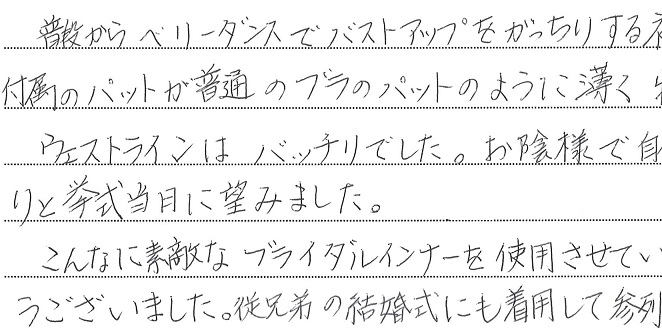 普段からベリーダンスでバストアップをがっちりする
付属のパットが普通のブラのパットのように薄く
ウェストラインはバッチリでした。お陰様で自
りと挙式当日に望みました。
こんなに素敵なブライダルインナーを使用させてい
うございました。従兄弟の結婚式にも着用して参列